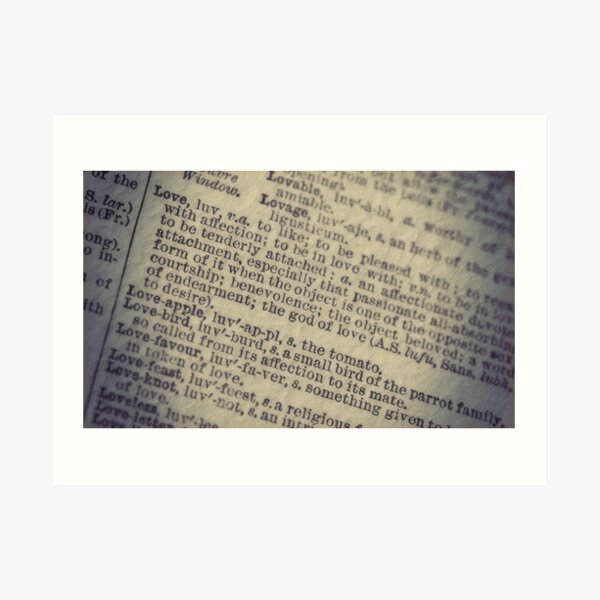 of the
S. lar.)
ls (Fr.)
ong).
o in-
n of
ith
Window.
opening).
from the
Lovable, luv'-à-bl, a. worthy of
amiable.
Lovage, luv'-aje, s. an herb of the
ligusticum.
Love, luv, v.a. to like; to be pleased with; to
with affection; to be in love with; v.n. to be in
to be tenderly attached: s. an affectionate
attachment, especially that passionate all-absorbin
form of it when the object is one of the opposite sex
courtship; benevolence; the object beloved; a word
of endearment; the god of love (A.S. lufu, Sans. lubh,
to desire).
Love-apple, luv'-ap-pl, s. the tomato.
Love-bird, luv'-burd, s. a small bird of the parrot family,
so called from its affection to its mate.
Love-favour, luv'-fa-ver, s. something given to
in token of love.
Love-feast, luv'-feest, s. a religious
Love-knot, luv'-not, s. an
of love.
Loveless, luv'-les
Love-letter